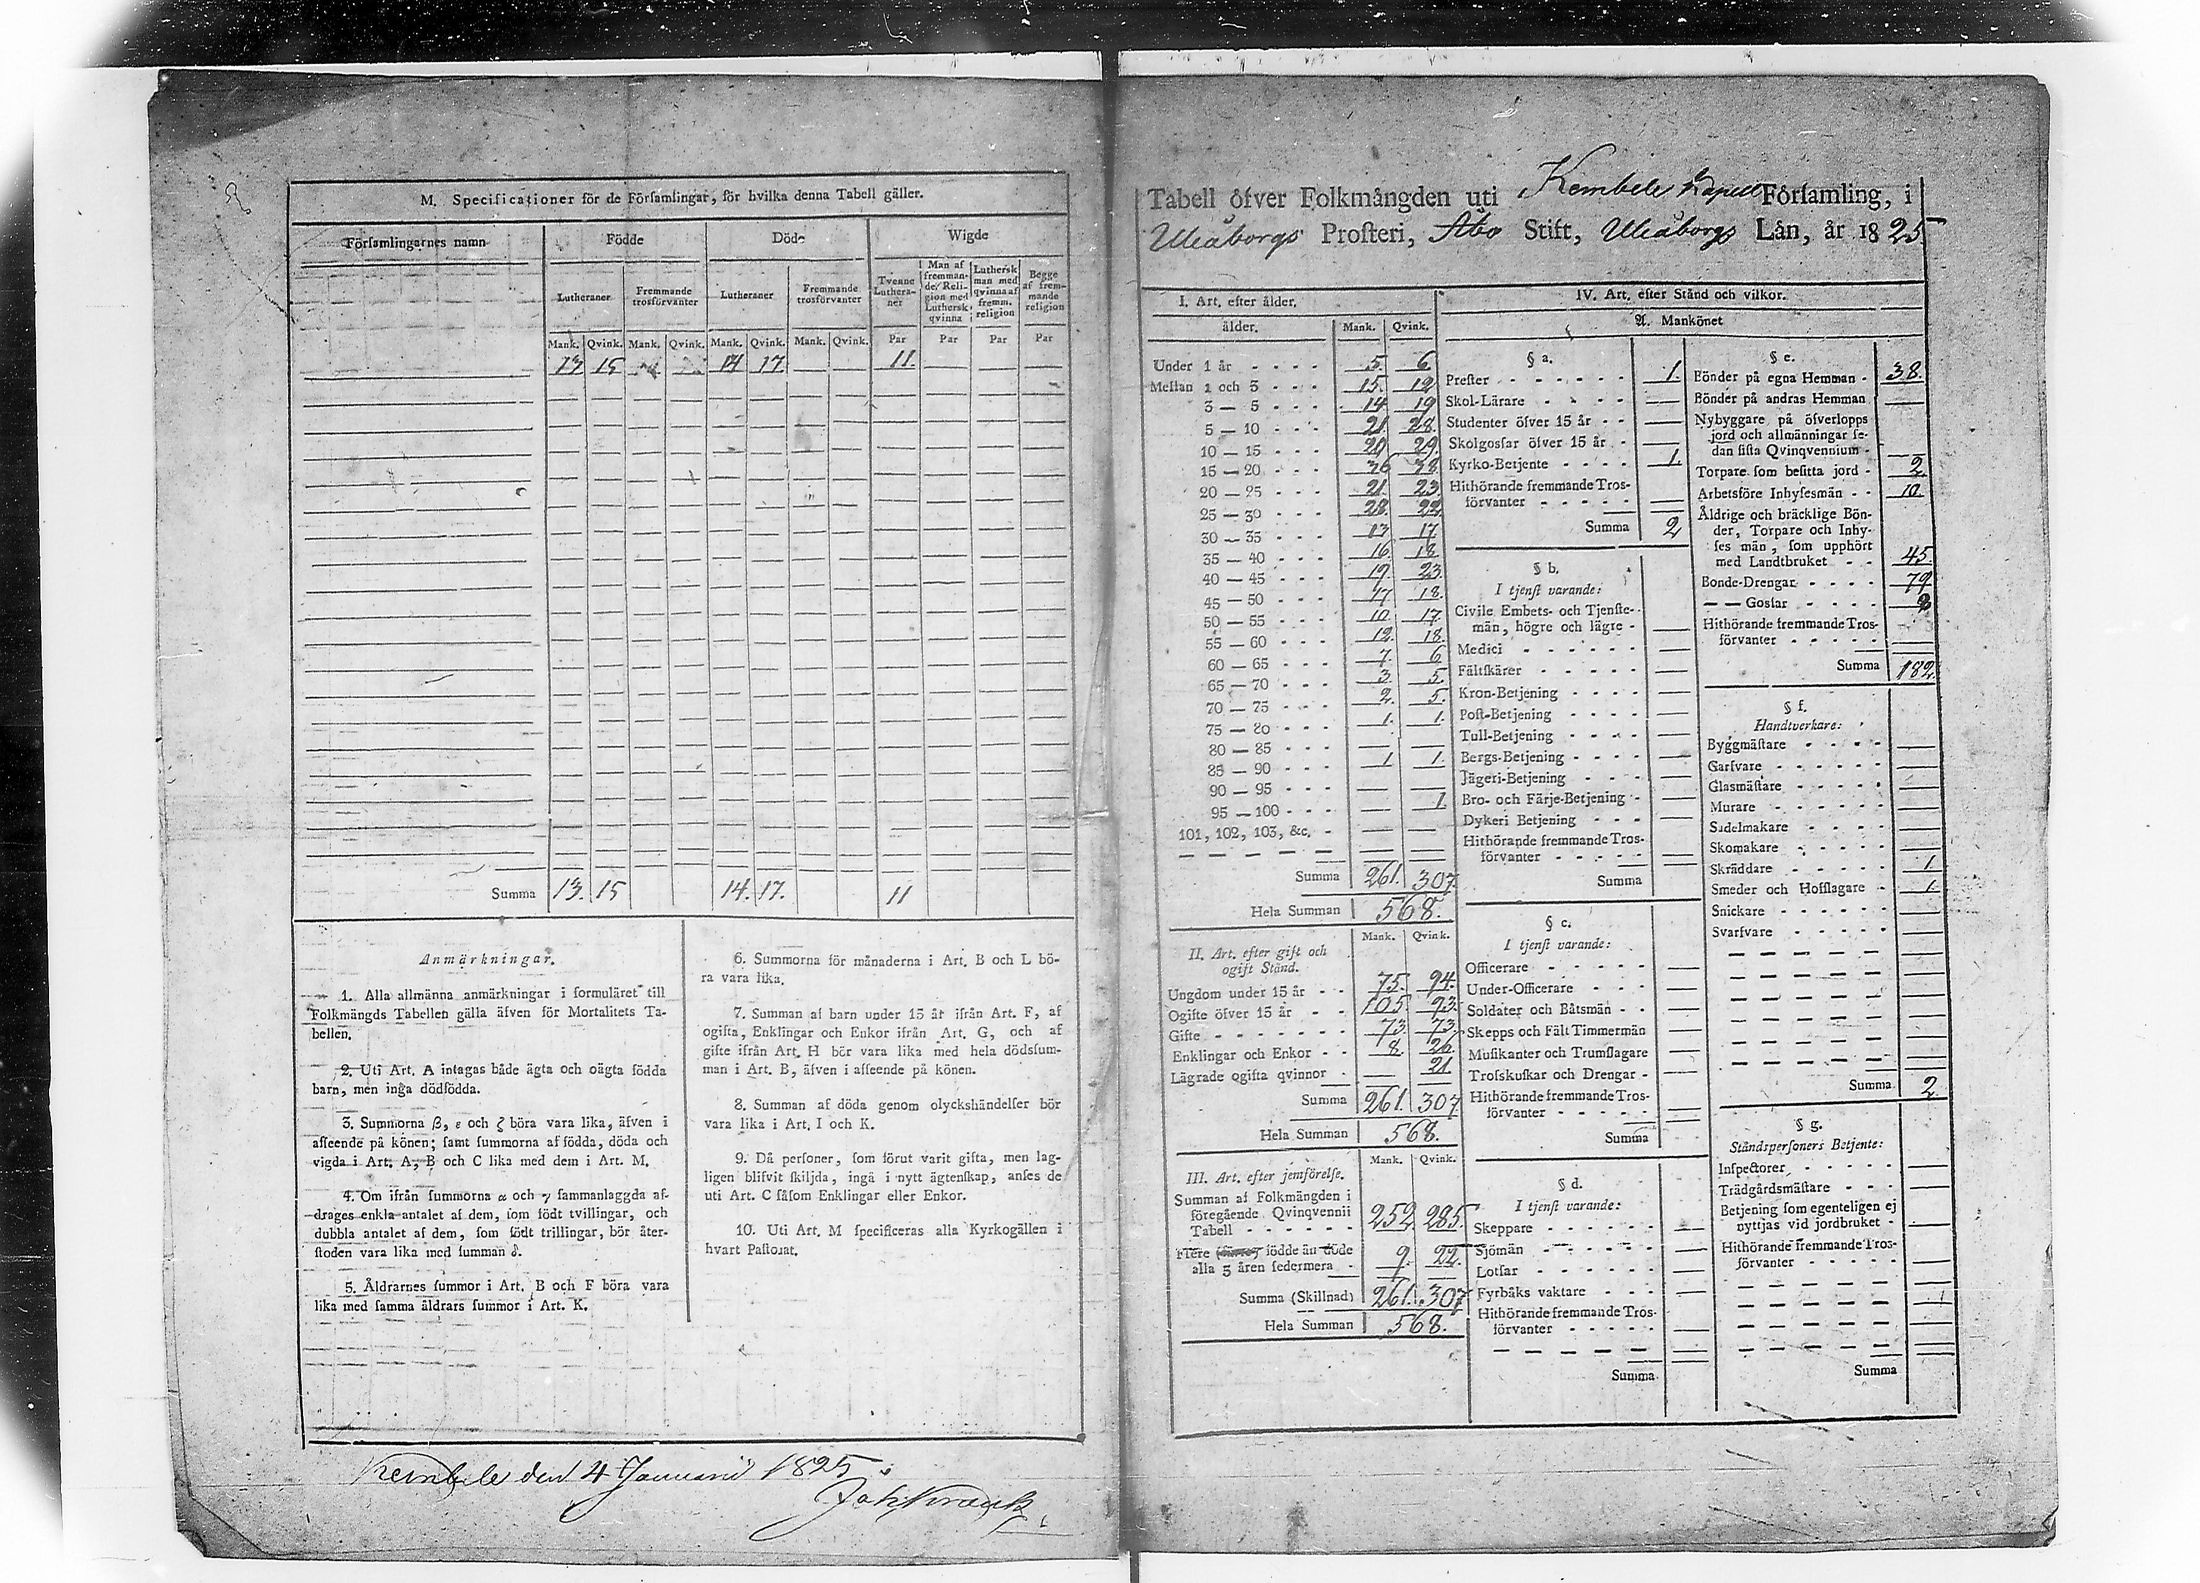 M. Specificationer för de Församlingar, för hvilka denna Tabell gäller.
Församlingarnes namn Födde Döde Wigde
Lutheraner Fremmande trosförvanter Lutheraner Fremmande trosförvanter Tvenne Lutheraner Man af fremmande Religion med Luthersk qvinna Luthersk man med qvinna af fremm. religion Begge af fremmande religion
Mank. Qvink. Mank. Qvink. Mank. Qvink. Mank. Qvink. Par Par Par Par
13 15 14 17. 11.
Summa 13. 15 14. 17. 11
Anmärkningar.
1. Alla allmänna anmärkningar i formuläret till
Folkmängds Tabellen gälla äfven för Mortalitets Ta-
bellen.
2. Uti Art. A intagas både ägta och oägta födda
barn, men inga dödfödda.
3. Summorna β, ε och ζ böra vara lika, äfven i
afseende på könen; samt summorna af födda, döda och
vigda i Art. A, B och C lika med dem i Art. M.
4. Om ifrån summorna α och γ sammanlaggda af-
drages enkla antalet af dem, som födt tvillingar, och
dubbla antalet af dem, som födt trillingar, bör åter-
stoden vara lika med summan δ.
5. Åldrarnes summor i Art. B och F böra vara
lika med samma åldrars summor i Art. K.
6. Summorna för månaderna i Art. B och L bö-
ra vara lika.
7. Summan af barn under 15 år ifrån Art. F, af
ogifta, Enklingar och Enkor ifrån Art. G, och af
gifte ifrån Art. H bör vara lika med hela dödssum-
man i Art. B, äfven i afseende på könen.
8. Summan af döda genom olyckshändelser bör
vara lika i Art. I och K.
9. Då personer, som förut varit gifta, men lag-
ligen blifvit skiljda, ingå i nytt ägtenskap, anses de
uti Art. C såsom Enklingar eller Enkor.
10. Uti Art. M specificeras alla Kyrkogällen i
hvart Pastorat.
Kembele den 4 Januarii 1825
Tabell öfver Folkmängden uti Kembele Kapell Församling, i
Uleåborgs Prosteri, Åbo Stift, Uleåborgs Län, år 1825
I. Art. efter ålder.
ålder. Mank. Qvink.
Under 1 år 5. 6
Mellan 1 och 3 15. 12
3 — 5 14 19
5 — 10 21. 28.
10 — 15 20 29.
15 — 20 36 38.
20 — 25 21. 23.
25 — 30 28. 22
30 — 35 13 17.
35 — 40 16. 18.
40 — 45 19. 23.
45 — 50 17 18.
50 — 55 10. 17.
55 — 60 12. 18.
60 — 65 7. 6
65 — 70 3. 5.
70 — 75 2. 5.
75 — 80 1. 1.
80 — 85
85 — 90 1 1.
90 — 95
95 — 100 1.
101, 102, 103, &c.
Summa 261. 307.
Hela Summan 568.
II. Art. efter gift och
ogift Stånd. Mank. Qvink.
Ungdom under 15 år 75. 94.
Ogifte öfver 15 år 105. 93.
Gifte 73. 73.
Enklingar och Enkor 8. 26.
Lägrade ogifta qvinnor 21
Summa 261. 307
Hela Summan 568.
III. Art. efter jemförelse. Mank. Qvink.
Summan af Folkmängden i
föregående Qvinqvennii
Tabell 252 285.
Flere födde än döde
alla 5 åren sedermera 9. 22.
Summa (Skillnad) 261. 307
Hela Summan 568.
IV. Art. efter Stånd och vilkor.
A. Mankönet
§ a.
Prester 1.
Skol-Lärare
Studenter öfver 15 år
Skolgossar öfver 15 år
Kyrko-Betjente 1.
Hithörande fremmande Tros-
förvanter
Summa 2
§ b.
I tjenst varande:
Civile Embets- och Tjenste-
män, högre och lägre
Medici
Fältskärer
Kron-Betjening
Post-Betjening
Tull-Betjening
Bergs-Betjening
Jägeri-Betjening
Bro- och Färje-Betjening
Dykeri Betjening
Hithörande fremmande Tros-
förvanter
Summa
§ c.
I tjenst varande:
Officerare
Under-Officerare
Soldater och Båtsmän
Skepps och Fält Timmermän
Musikanter och Trumslagare
Trosskuskar och Drengar
Hithörande fremmande Tros-
förvanter
Summa
§ d.
I tjenst varande:
Skeppare
Sjömän
Lotsar
Fyrbåks vaktare
Hithörande fremmande Tros-
förvanter
Summa
§ e.
Bönder på egna Hemman 38.
Bönder på andras Hemman
Nybyggare på öfverlopps
jord och allmänningar se-
dan sista Qvinqvennium
Torpare som besitta jord 2.
Arbetsföre Inhysesmän 10.
Åldrige och bräcklige Bön-
der, Torpare och Inhy-
ses män, som upphört
med Landtbruket 45.
Bonde-Drengar 79
— — Gossar 8
Hithörande fremmande Tros-
förvanter
Summa 182
§ f.
Handtverkare:
Byggmästare
Garfvare
Glasmästare
Murare
Sadelmakare
Skomakare
Skräddare 1.
Smeder och Hofslagare 1.
Snickare
Svarfvare
Summa 2
§ g.
Ståndspersoners Betjente:
Inspectorer
Trädgårdsmästare
Betjening som egenteligen ej
nyttjas vid jordbruket
Hithörande fremmande Tros-
förvanter
Summa